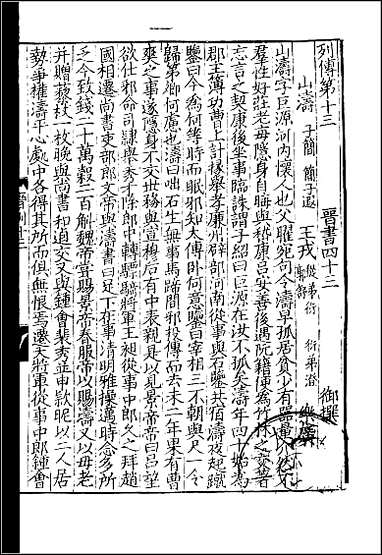 列傳第十三 晉書四十三
山濤 子簡 簡子遐 王戎 從弟衍 衍弟澄 御撰
山濤字巨源河內懷人也父曜宛句令濤早孤居貧少有器量介然不
羣性好莊老毎隱身自晦與嵇康呂安善後遇阮籍便為竹林之交著
忘言之契康後坐事臨誅謂子紹曰巨源在汝不孤矣濤年四十始為
郡主簿功曹上計掾舉孝廉州辟部河南從事與石鑒共宿濤夜起蹴
鑒曰今為何等時而眠邪知太傅卧何意鑒曰宰相三不朝與尺一令
歸第卿何慮也濤曰咄石生無事馬蹄間邪投傳而去未二年果有曹
爽之事遂隱身不交世務與宣穆后有中表親是以見景帝帝曰呂望
欲仕邪命司隸舉秀才除郎中轉驃騎將軍王昶從事中郎久之拜趙
國相遷尚書吏部郎文帝與濤書曰足下在事清明雅操邁時念多所
乏今致錢二十萬穀二百斛魏帝嘗賜景帝春服帝以賜濤又以母老
并贈藜杖一枚晚與尚書和逌交又與鍾會裴秀並申款昵以二人居
勢爭權濤平心處中各得其所而俱無恨焉遷大將軍從事中郎鍾會